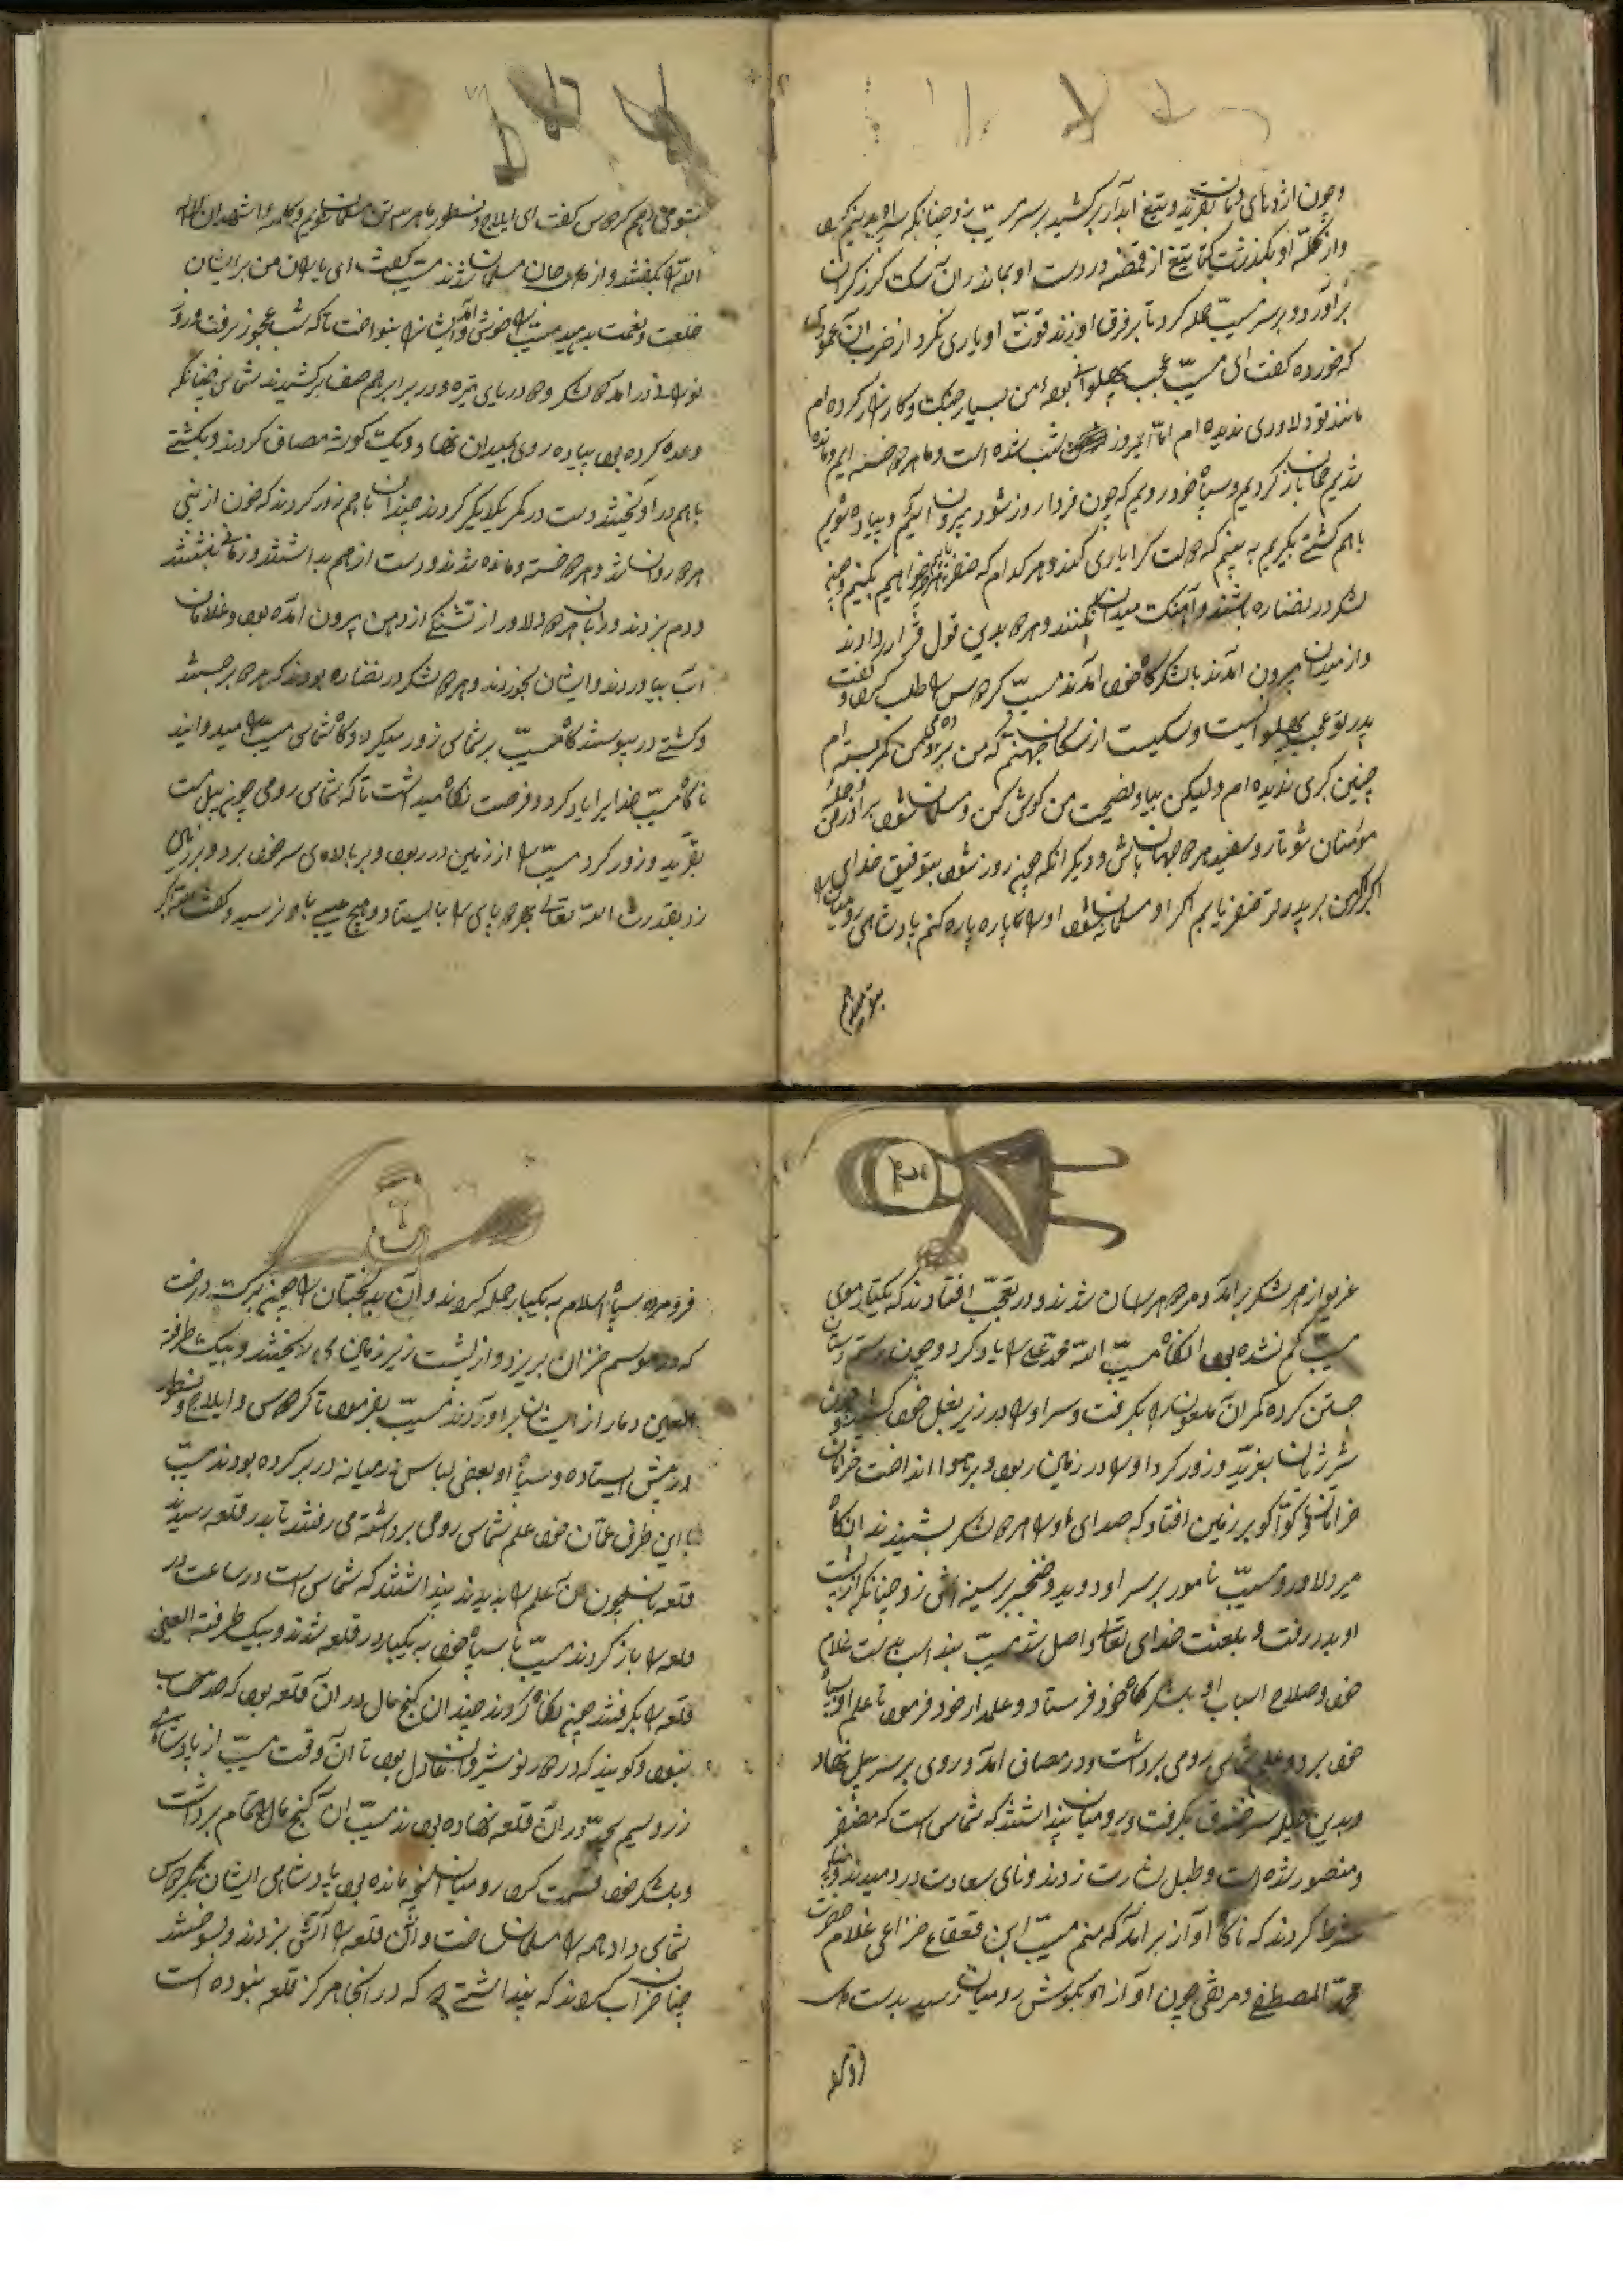 وچون اژدهای دمان بغرید و تیغ ابدار برکشید بر سر مسیّب زد چنانکه سپر او بدو نیم کرد
و از کلّه او بگذشت تیغ از قبضه در دست او بماند ان سک کرز کران
برآورد و بر سر مسیّب حمله کرد تا بر فرق او زند قوّت او یاری نکرد از ضرب آن عمودی
که خورده گفت ای مسیّب عجب پهلوانی بوده من بسیار جنک و کارزار کرده ام
مانند تو دلاوری ندیده ام امّا امروز شب شده است و ما هر دو خسته ایم و مانده
شدیم عنان باز کردیم و سپاه خود رویم که چون فردا روز شود بیرون آئیم و پیاده شویم
باهم کشتی بکیریم به بینیم که دولت کرا یاری کند و هر کدام که ظفر یابیم هرچه خواهیم بکنیم و هر دو
لشکر در نضاره باشند و آهنک میدان نکنند و هر دو بدین قول قرار دادند
و از میدان بیرون آمدند با لشکرکاه خود آمدند مسیّب کردوس را طلب کرد و گفت
پدر تو عجب پهلوانیست و سکیست از سکان جهنم که من تا کمر بسته ام
چنین کبری ندیده ام ولیکن بیا و نصیحت من کوش کن و مسلمان شو برادر من و جمله
مؤمنان شو تا رو سفید هر دو جهان باشی و دیکر انکه چون روز شود بتوفیق خدای
اکبر من بر پدر تو ظفر یابم اکر او مسلمان نشود او را پاره پاره کنم پادشاهی رومیان را
بتو دهم
بتو دهم کردوس کفت ای ایلاج و نسطور ما هر سه تن مسلمان شویم و کلمه اشهد ان لا اله
الا الله بکفتند و از دل و جان مسلمان شدند مسیّب کفت ای یاران من برایشان
خلعت و نعمت بدهید مسیّب را خوش آمد و ایشانرا بنواخت تا که شب عجوز برفت و روز
نورانی در آمد آن لشکر دو دریای تیره در برابر هم صف برکشیدند شماس چنانکه
وعده کرده بود پیاده روی بمیدان نهاد و یک کوشه مصاف کردند و بکشتی
باهم درآویختند دست در کمر یکدیکر کردند چندان باهم زور کردند که خون از بینی
هر دو روان شد و هر دو خسته و مانده شدند و دست از هم بداشتند و زمانی بنشستند
و دم بزدند و زبان هر دو دلاور از تشنکی از دهن بیرون آمده بود و غلامان
آب بیاوردند و ایشان بخوردند و هر دو لشکر در نضاره بودند که هر دو برجستند
و کشتی در پیوستند کاه مسیّب بر شماس زور میکرد و کاه شماس مسیّب را میدوانید
ناکاه مسیّب خدایرا یاد کرد و فرصت نکاه میداشت تا که شماس رومی چون پیل مست
بغرید و زور کرد مسیّب را از زمین در ربود و بر بالای سر خود برد و بر زمین
زد بقدرت الله تعالی بهر دو پای بایستاد و هیچ عیبی باو نرسید و گفت الله اکبر
غریو از هر لشکر برآمد و مردم هراسان شدند و در تعجّب افتادند که یکتار موی
مسیّب کم نشده بود انکاه مسیّب الله محمّد علی را یاد کرد و چون رستم دستان
جستن کرده کمر آن ملعون را بکرفت و سر او را در زیر بغل خود کشید و چون
شیر ژیان بغرّید و زور کرد او را در زمین ربود و بر هوا انداخت خرامان
خرامان کوتا کو بر زمین افتاد که صدای او را هر دو لشکر بشنیدند انکاه
میر دلاور و مسیّب نامور بر سر او دوید و خنجر بر سینه اش زد چنانکه از پشت
او بدر رفت و بلعنت خدای تعالی واصل شد مسیّب بند اسب بدست غلام
خود و صلاح اسباب او بلشکرکاه خود فرستاد و علمدار خود فرمود تا علم او بسپاه
خود برد و علم شماس رومی برداشت و در مصاف امد و روی بر سر پیل نهاد
و بدین حیله سر خندق بکرفت و رومیان پنداشتند که شماس است که مظفر
و منصور شده است و طبل بشارت زدند و نای سعادت در دمیدند و نشاط
شرط کردند که ناکاه آواز برآمد که منم مسیّب ابن قعقاع خزاعی غلام حضرت
محمّد المصطفی و مرتضی چون آواز او بکوش رومیان رسید بدست و پا
فرو مرده
فرو مرده سپاه اسلام به یکبار حمله کردند و آن بدبختان را چون برک درخت
که در موسم خزان بریزد و از پشت زین بزمین می ریختند و بیک طرفة
العین دمار از ایشان برآوردند مسیّب بفرمود تا کردوس و ایلاج و نسطور
در پیش ایستاده و سپاه او بعضی لباس رومیانه در بر کرده بودند مسیّب
با این طرف عنان خود علم شماس رومی برداشته می رفتند تا بدر قلعه رسید
قلعه بانان چون آن علم را بدیدند پنداشتند که شماس است در ساعت در
قلعه را باز کردند مسیّب با سپاه خود به یکبار در قلعه شدند و بیک طرفة العین
قلعه را بکرفتند چون نکاه کردند چندان کنج مال در ان قلعه بود که حد حساب
نبود و کویند که در دور نوشیروان عادل بود تا آن وقت مسیّب از پادشاهی
زر و سیم بیحد در آن قلعه نهاده بودند مسیّب ان کنج مال تمام برداشت
و بلشکر خود قسمت کرد رومیان آنچه مانده بود پادشاهی ایشان بکردوس
شماس داد و همه را مسلمان ساخت و آن قلعه را آتش بزدند و بسوختند
چنان خراب کردند که پنداشتی که در انجا هرکز قلعه نبوده است